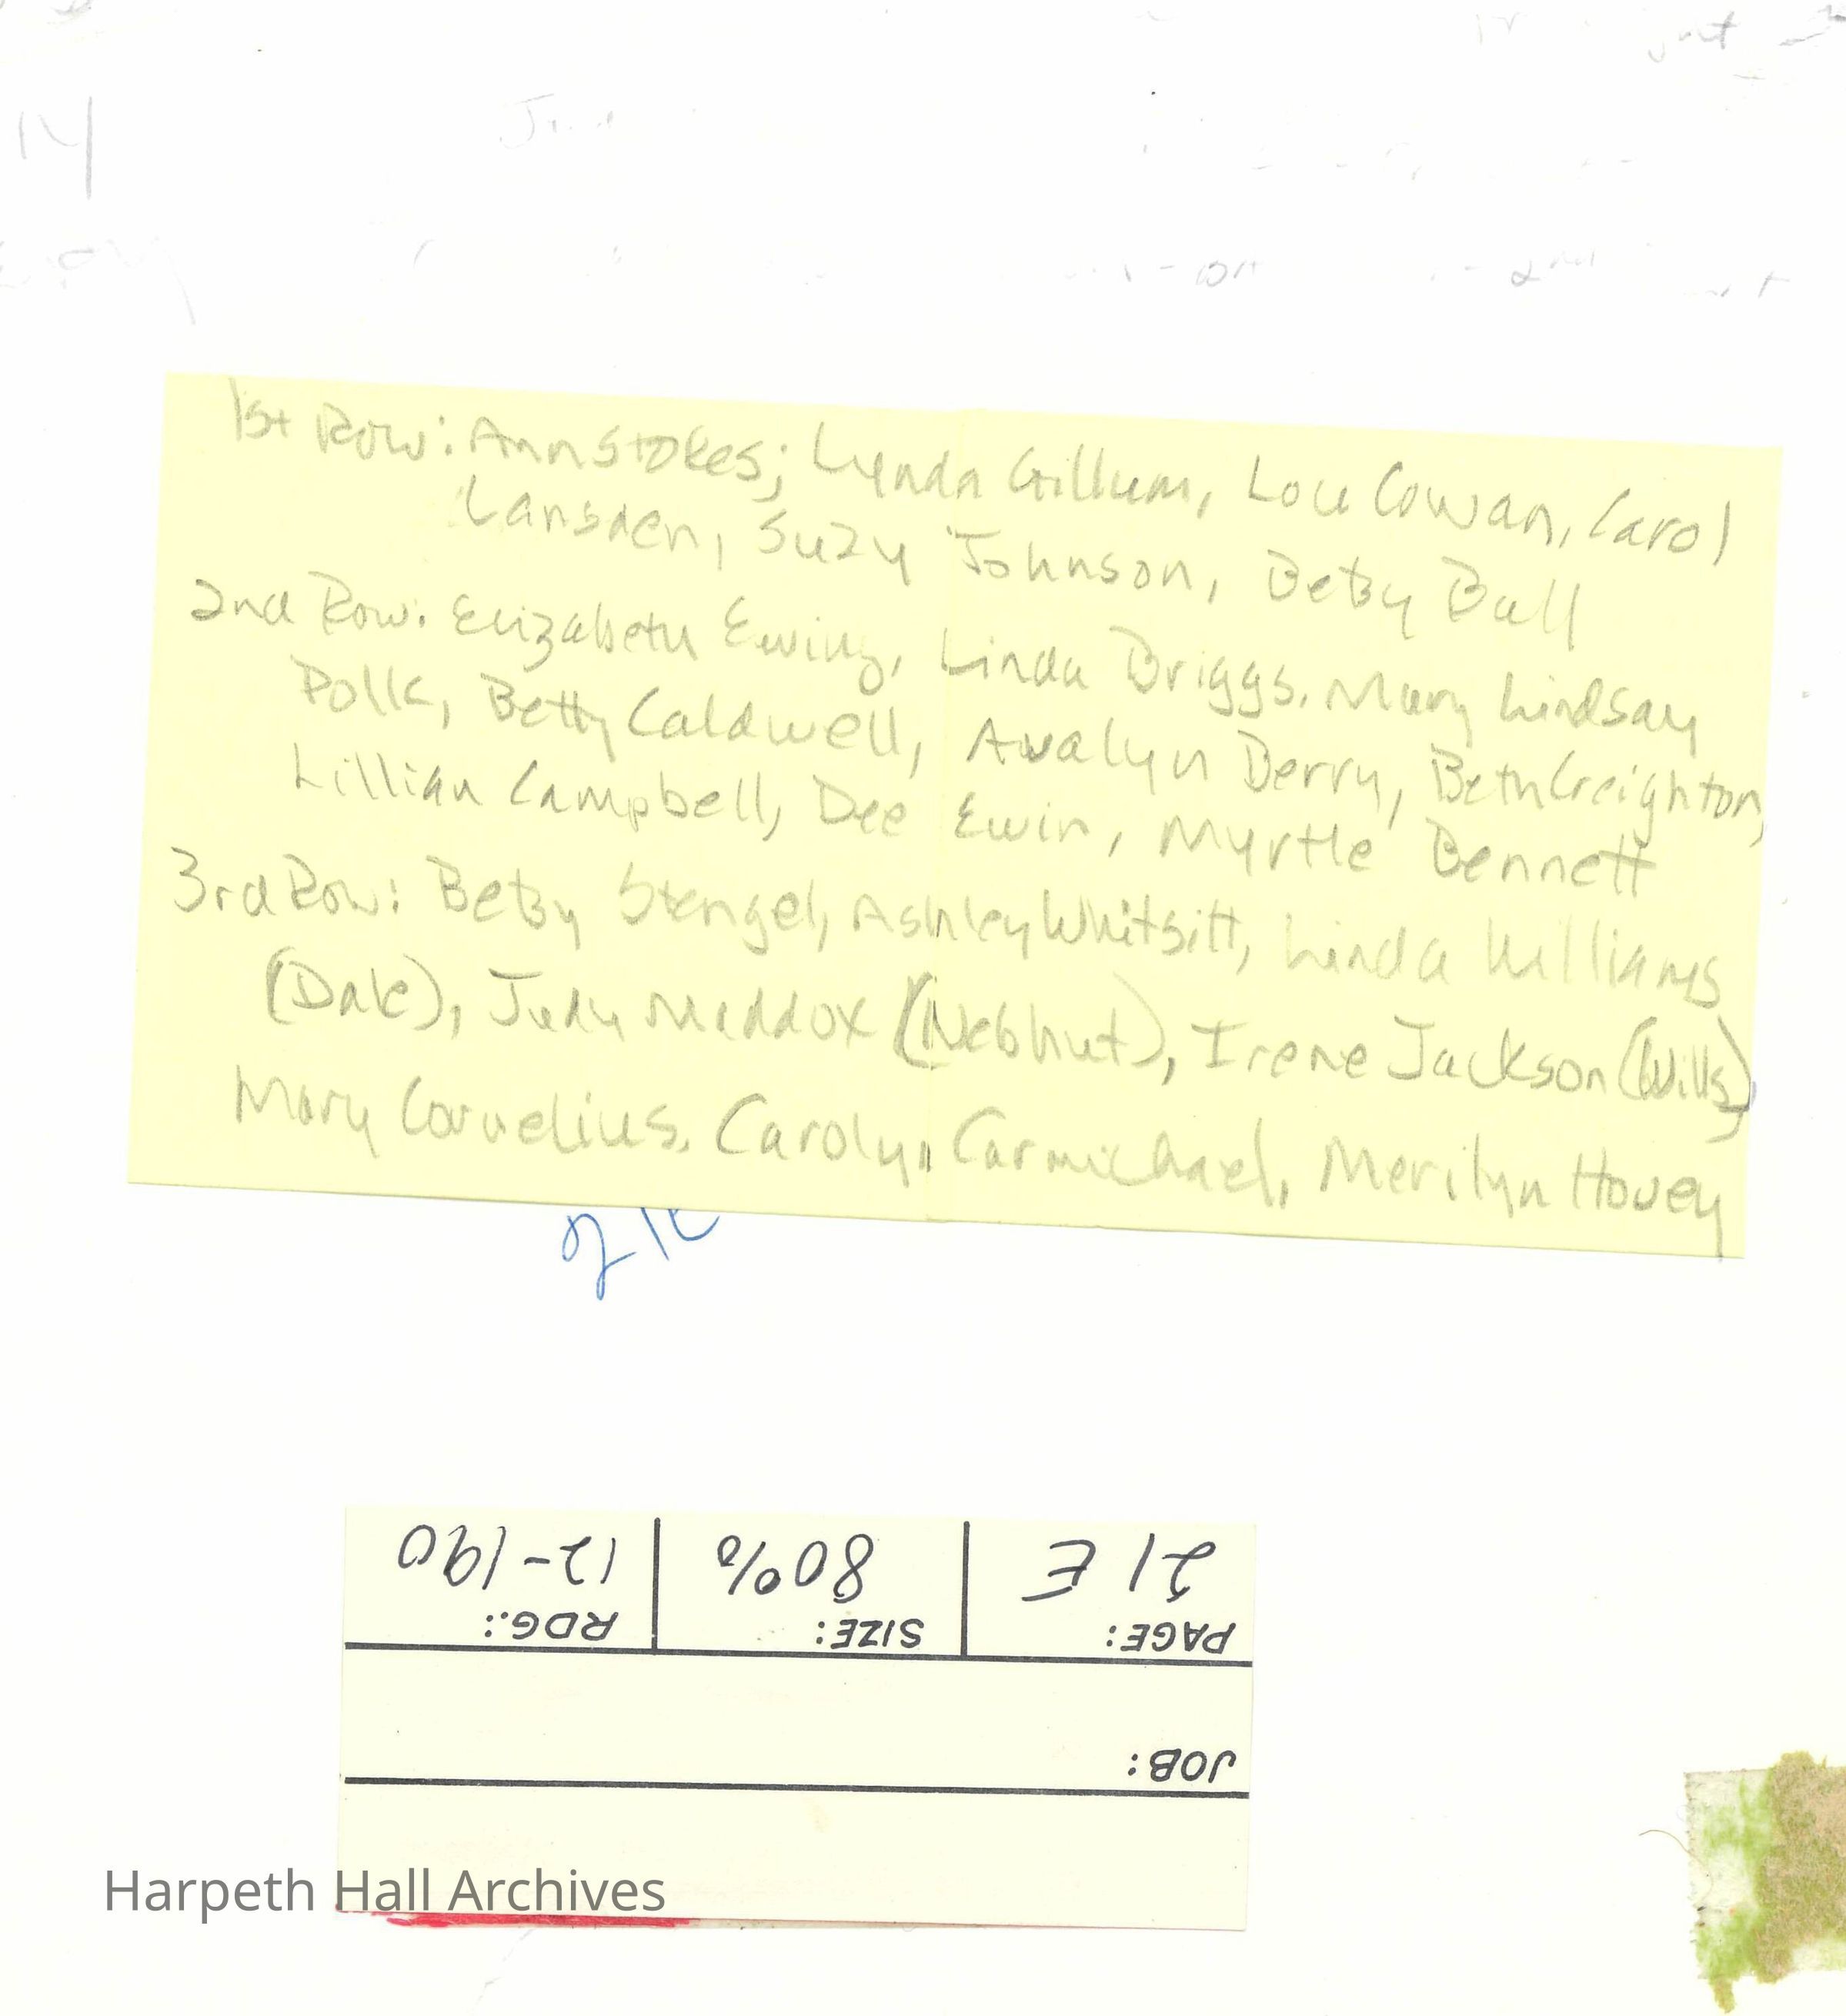 14
1st Row: Ann Stokes; Lynda Gillum, Lou Cowan, Carol
Lansden, Suzy Johnson, Betsy Ball
2nd Row: Elizabeth Ewing, Linda Briggs, Mary Lindsay
Polk, Betty Caldwell, Avalyn Berry, Beth Creighton,
Lillian Campbell, Dee Ewin, Myrtle Bennett
3rd Row: Betsy Stengel, Ashley Whitsitt, Linda Williams
(Dale), Judy Maddox (Nebhut), Irene Jackson (Wills)
Mary Cornelius, Carolyn Carmichael, Merilyn Hovey
PAGE: 21 E
SIZE: 80%
RDG.: 12-190
JOB:
Harpeth Hall Archives